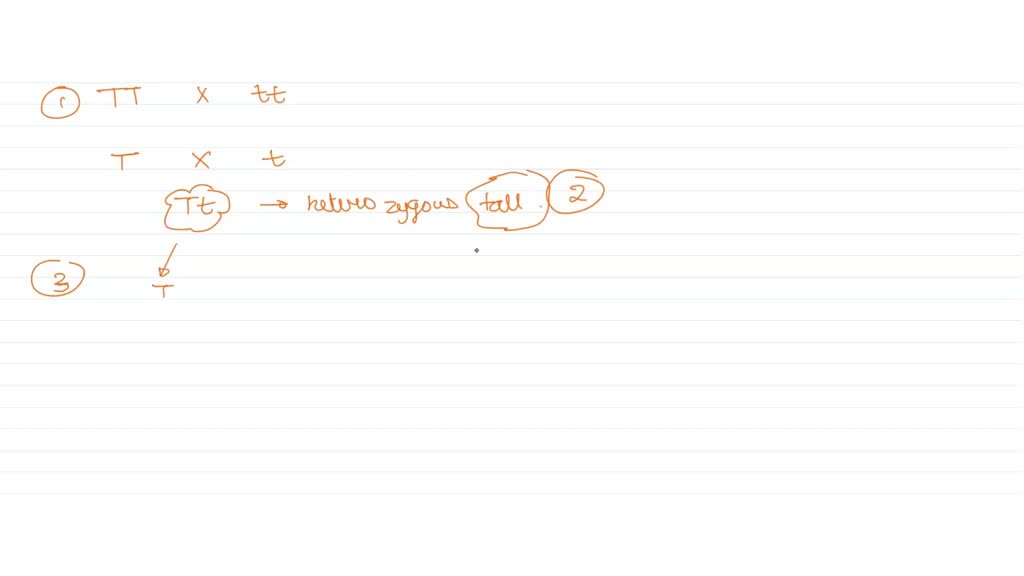 1 TT x tt
T x t
Tt → heterozygous tall. 2
3 T